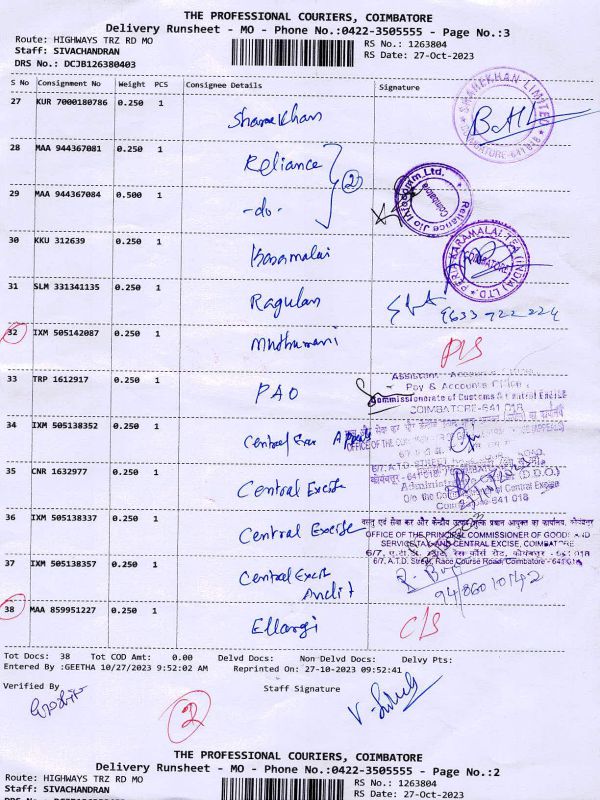 THE PROFESSIONAL COURIERS, COIMBATORE
Delivery Runsheet - MO - Phone No.:0422-3505555 - Page No.:3
Route: HIGHWAYS TRZ RD MO
RS No.: 1263804
Staff: SIVACHANDRAN
RS Date: 27-Oct-2023
DRS No.: DCJB126380403
S No Consignment No Weight PCS Consignee Details Signature
27 KUR 7000180786 0.250 1 Sharekhan
SHAREKHAN LIMITED
COIMBATORE-641 018
28 MAA 944367081 0.250 1 Reliance
2
29 MAA 944367084 0.500 1 -do-
Reliance Jio Infocomm Ltd.
Coimbatore
30 KKU 312639 0.250 1
PERIA KARAMALAI TEA (INDIA) LTD.
COIMBATORE
31 SLM 331341135 0.250 1 Ragulan
9633 722 224
32 IXM 505142087 0.250 1 Muthumani
33 TRP 1612917 0.250 1 PAO
Pay & Accounts Office
Commissionerate of Customs & Central Excise
COIMBATORE-641 018
34 IXM 505138352 0.250 1 Central Exe Appeals
35 CNR 1632977 0.250 1 Central Excise
36 IXM 505138337 0.250 1 Central Excise
OFFICE OF THE PRINCIPAL COMMISSIONER OF GOODS AND
SERVICE TAX AND CENTRAL EXCISE, COIMBATORE
6/7, A.T.D. Street, Race Course Road, Coimbatore - 641 018
37 IXM 505138357 0.250 1 Central Excise
Audit
38 MAA 859951227 0.250 1 Ellargi
C/S
Tot Docs: 38 Tot COD Amt: 0.00 Delvd Docs: Non Delvd Docs: Delvy Pts:
Entered By :GEETHA 10/27/2023 9:52:02 AM Reprinted On: 27-10-2023 09:52:41
Verified By
Staff Signature
2
THE PROFESSIONAL COURIERS, COIMBATORE
Delivery Runsheet - MO - Phone No.:0422-3505555 - Page No.:2
Route: HIGHWAYS TRZ RD MO
RS No.: 1263804
Staff: SIVACHANDRAN
RS Date: 27-Oct-2023